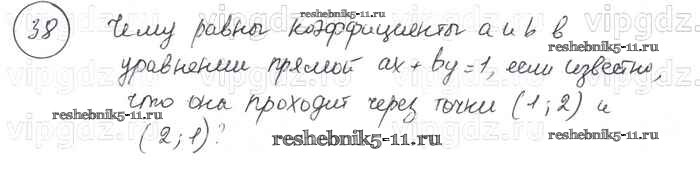 38 Чему равны коэффициенты a и b в
уравнении прямой ax + by = 1, если известно,
что она проходит через точки (1; 2) и
(2; 1)?
reshebnik5-11.ru
reshebnik5-11.ru
reshebnik5-11.ru
reshebnik5-11.ru